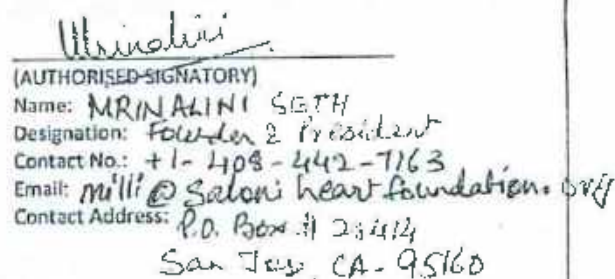 Mrinalini
(AUTHORISED SIGNATORY)
Name: MRINALINI SETH
Designation: Founder & President
Contact No.: +1-408-442-7163
Email: milli@saloniheartfoundation.org
Contact Address: P.O. Box #
San Jose, CA-95160